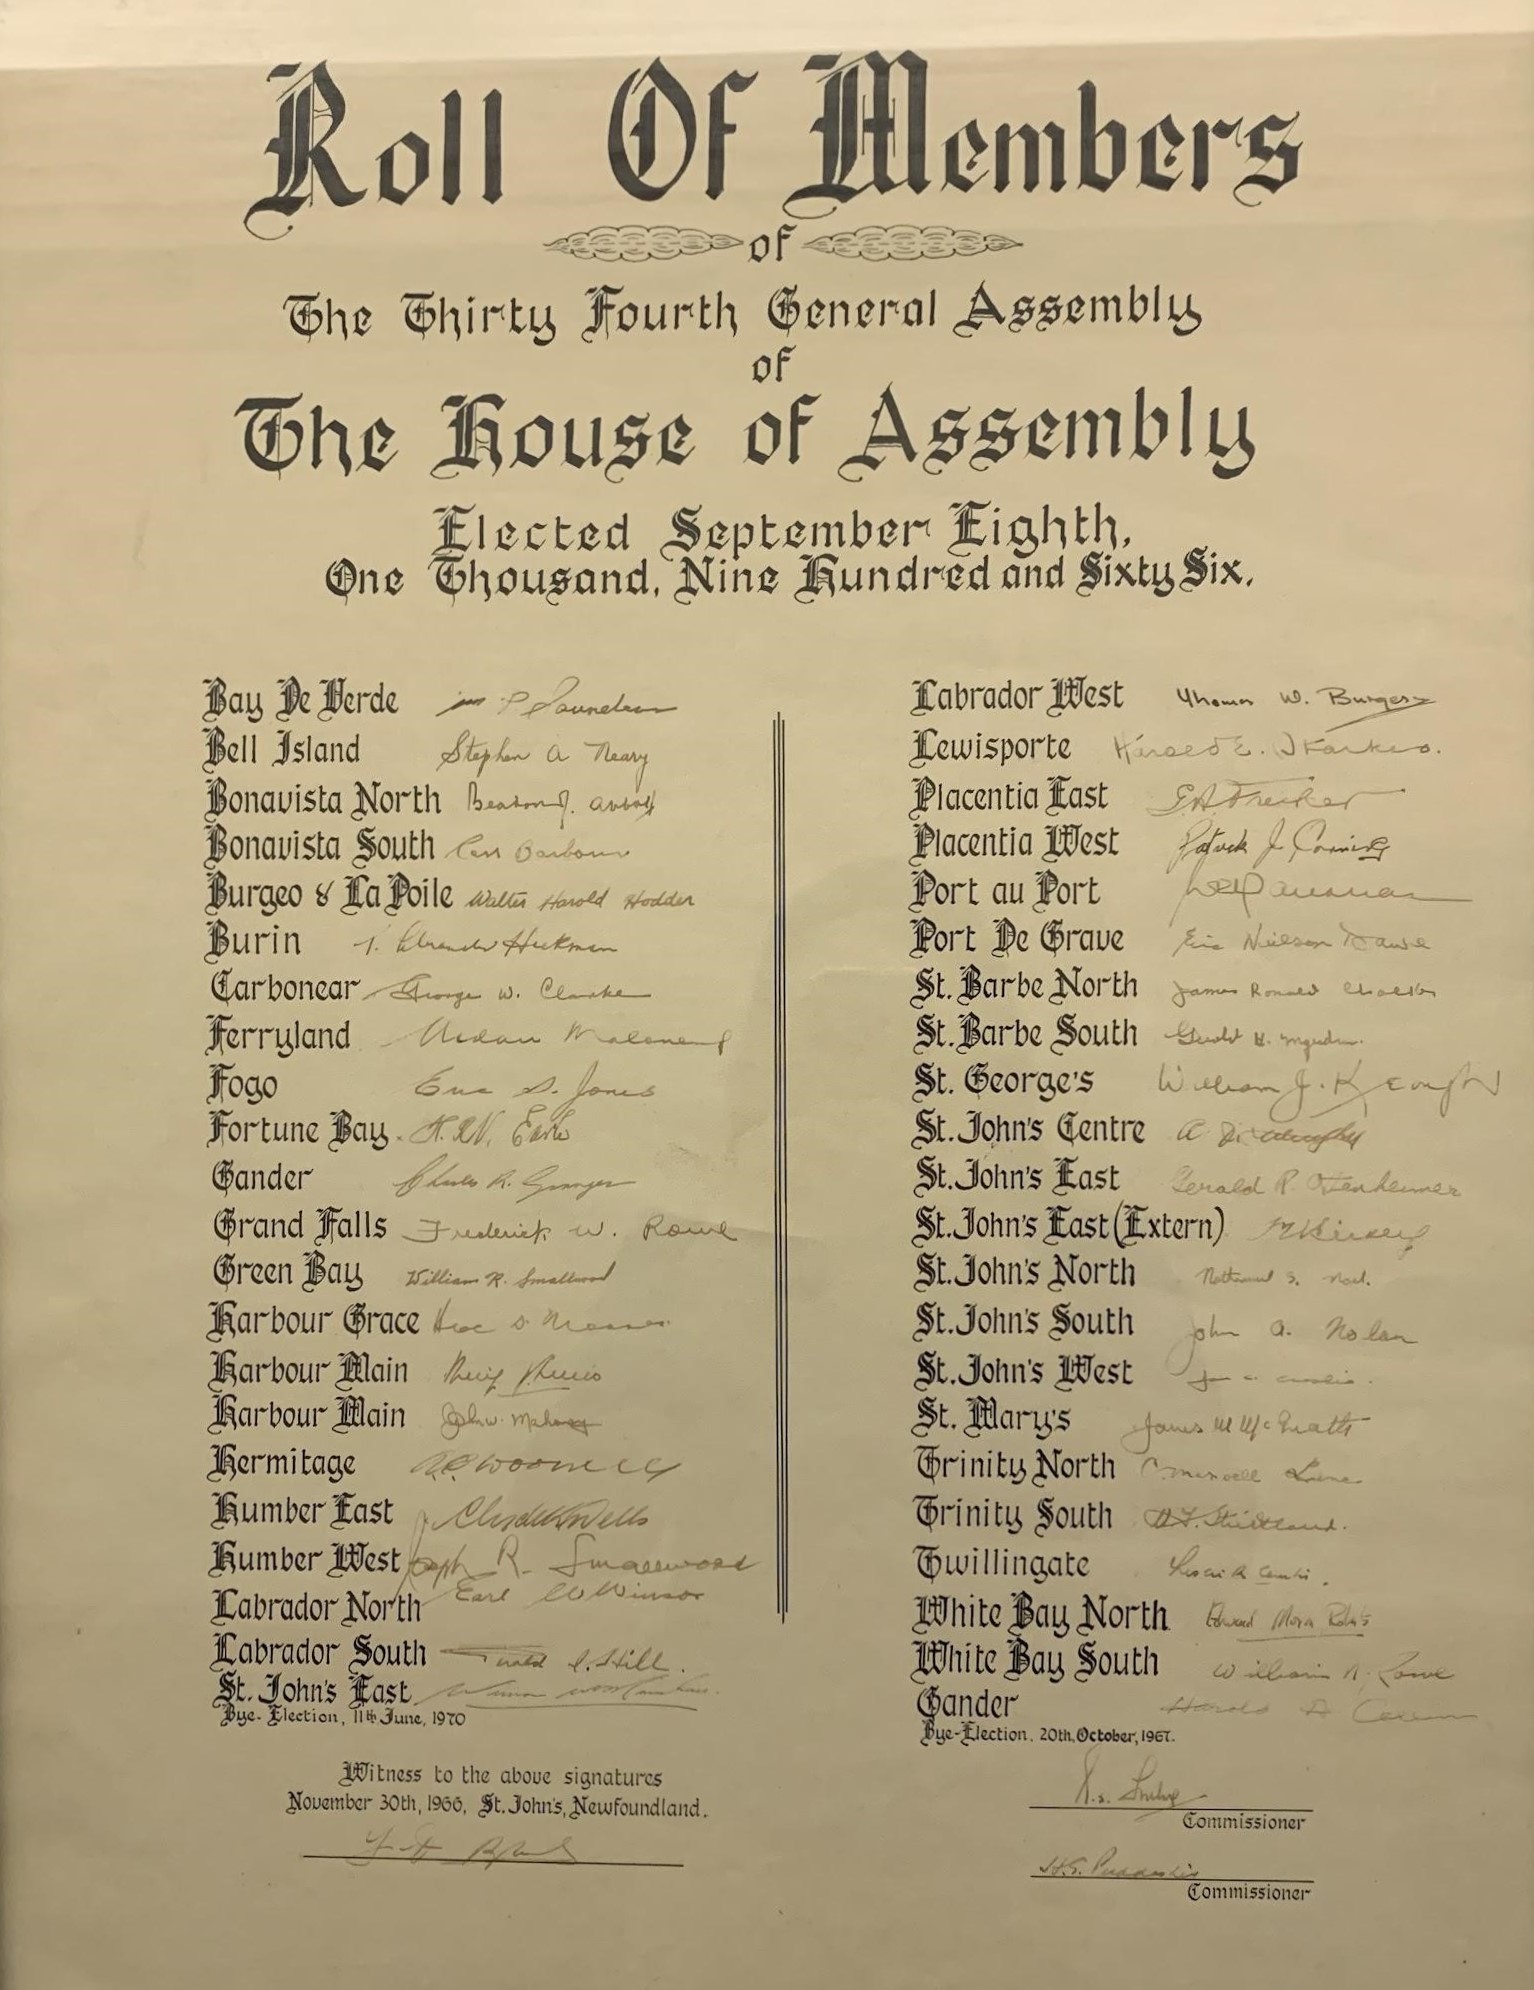 Roll Of Members
of
The Thirty Fourth General Assembly
of
The House of Assembly
Elected September Eighth,
One Thousand, Nine Hundred and Sixty Six.
Bay De Verde Wm P Saunders
Bell Island Stephen A Neary
Bonavista North Beaton J. Abbott
Bonavista South Ross Barbour
Burgeo & La Poile Walter Harold Hodder
Burin T. Alexander Hickman
Carbonear George W. Clarke
Ferryland Aidan Maloney
Fogo Eric S. Jones
Fortune Bay H.R.V. Earle
Gander Charles R. Granger
Grand Falls Frederick W. Rowe
Green Bay William R. Smallwood
Harbour Grace
Harbour Main Philip
Harbour Main John W. Mahoney
Hermitage
Humber East Clyde K Wells
Humber West Joseph R. Smallwood
Labrador North Earl W Winsor
Labrador South Gerald I. Hill.
St. John's East
Bye-Election, 11th June, 1970
Witness to the above signatures
November 30th, 1966, St. John's, Newfoundland.
Labrador West Thomas W. Burgess
Lewisporte Harold E. Starkes.
Placentia East G.A. Frecker
Placentia West Patrick J. Canning
Port au Port
Port De Grave Eric Neilson Dawe
St. Barbe North James Ronald Chalker
St. Barbe South
St. George's William J. Keough
St. John's Centre
St. John's East Gerald R. Ottenheimer
St. John's East (Extern)
St. John's North Nathaniel S. Noel.
St. John's South John A. Nolan
St. John's West
St. Mary's James M McGrath
Trinity North
Trinity South
Twillingate
White Bay North Edward Moxon Roberts
White Bay South William N. Rowe
Gander Harold A Collins
Bye-Election. 20th, October, 1967.
Commissioner
H.G. Puddester
Commissioner